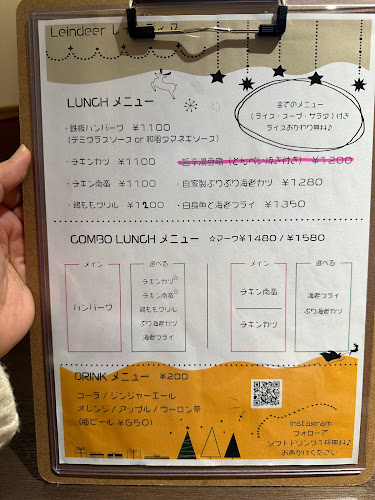 Leindeer レ
LUNCH メニュー
全てのメニュー
(ライス・スープ・サラダ)付き
ライスおかわり無料♪
・鉄板ハンバーグ ¥1100
(デミグラスソース or 和風タマネギソース)
・チキンカツ ¥1100
(とんぺい焼き付き) ¥1200
・チキン南蛮 ¥1100
・自家製ぷりぷり海老カツ ¥1280
・鶏ももグリル ¥1200
・白身魚と海老フライ ¥1350
COMBO LUNCH メニュー ☆マーク¥1480 / ¥1580
メイン
ハンバーグ
選べる
チキンカツ☆
チキン南蛮☆
鶏ももグリル
ぷり海老カツ
海老フライ
メイン
チキン南蛮
チキンカツ
選べる
海老フライ
ぷり海老カツ
DRINK メニュー ¥200
コーラ / ジンジャーエール
オレンジ / アップル / ウーロン茶
ビール ¥650)
Instagram
フォローで
ソフトドリンク1杯無料♪
お声がけください